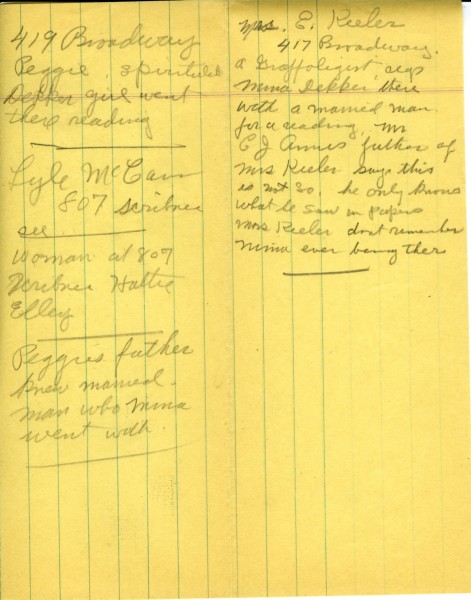 419 Broadway
Peggie, spiritulest
Dekker girl went
there reading
Lyle McCann
807 Scribner
see
Woman at 807
Scribner Hattie
Elley
Peggies father
knew married
man who Mina
went with.
Mrs. E. Keeler
417 Broadway.
a Graffoligest, says
Mina Dekker, there
with a married man
for a reading, Mr
E J Annis father of
Mrs Keeler says this
is not so. he only knows
what he saw in papers
Mrs Keeler dont remember
Mina ever being ther